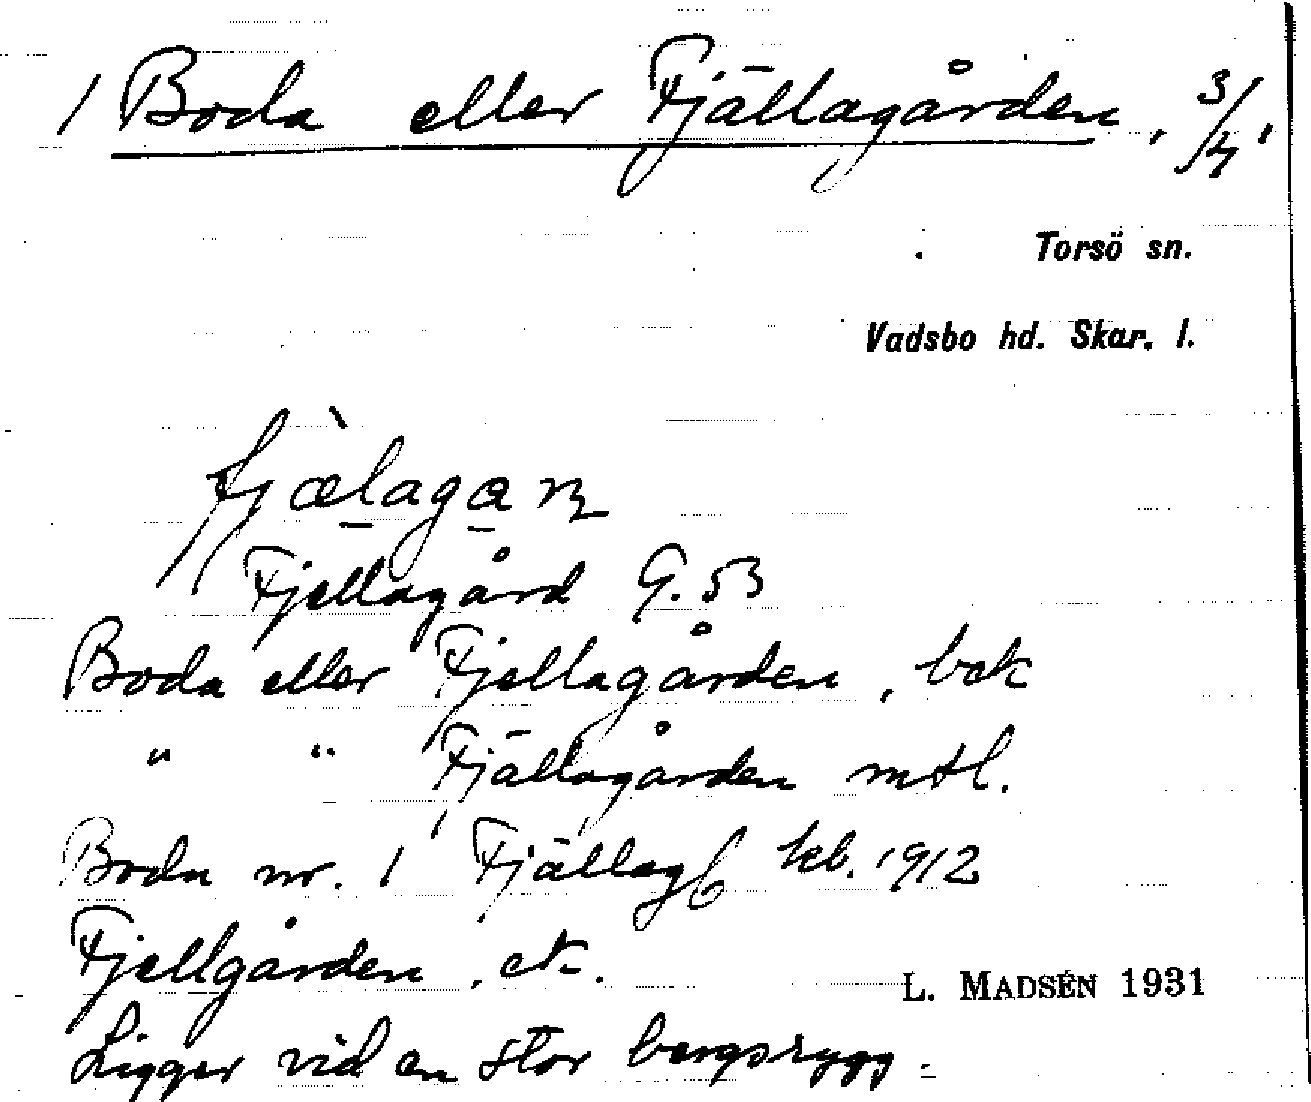 1 Boda eller Fjällagården, 3/4,
Torsö sn.
Vadsbo hd. Skar. l.
fjæ̀lagaɳ
Fjellagård G. 53
Boda eller Fjellagården, bok
" " Fjällagården mtl.
Boda nr. 1 Fjällag kb. 1912
Fjellgården, ek.
L. MADSÉN 1931
Ligger vid en stor bergsrygg.